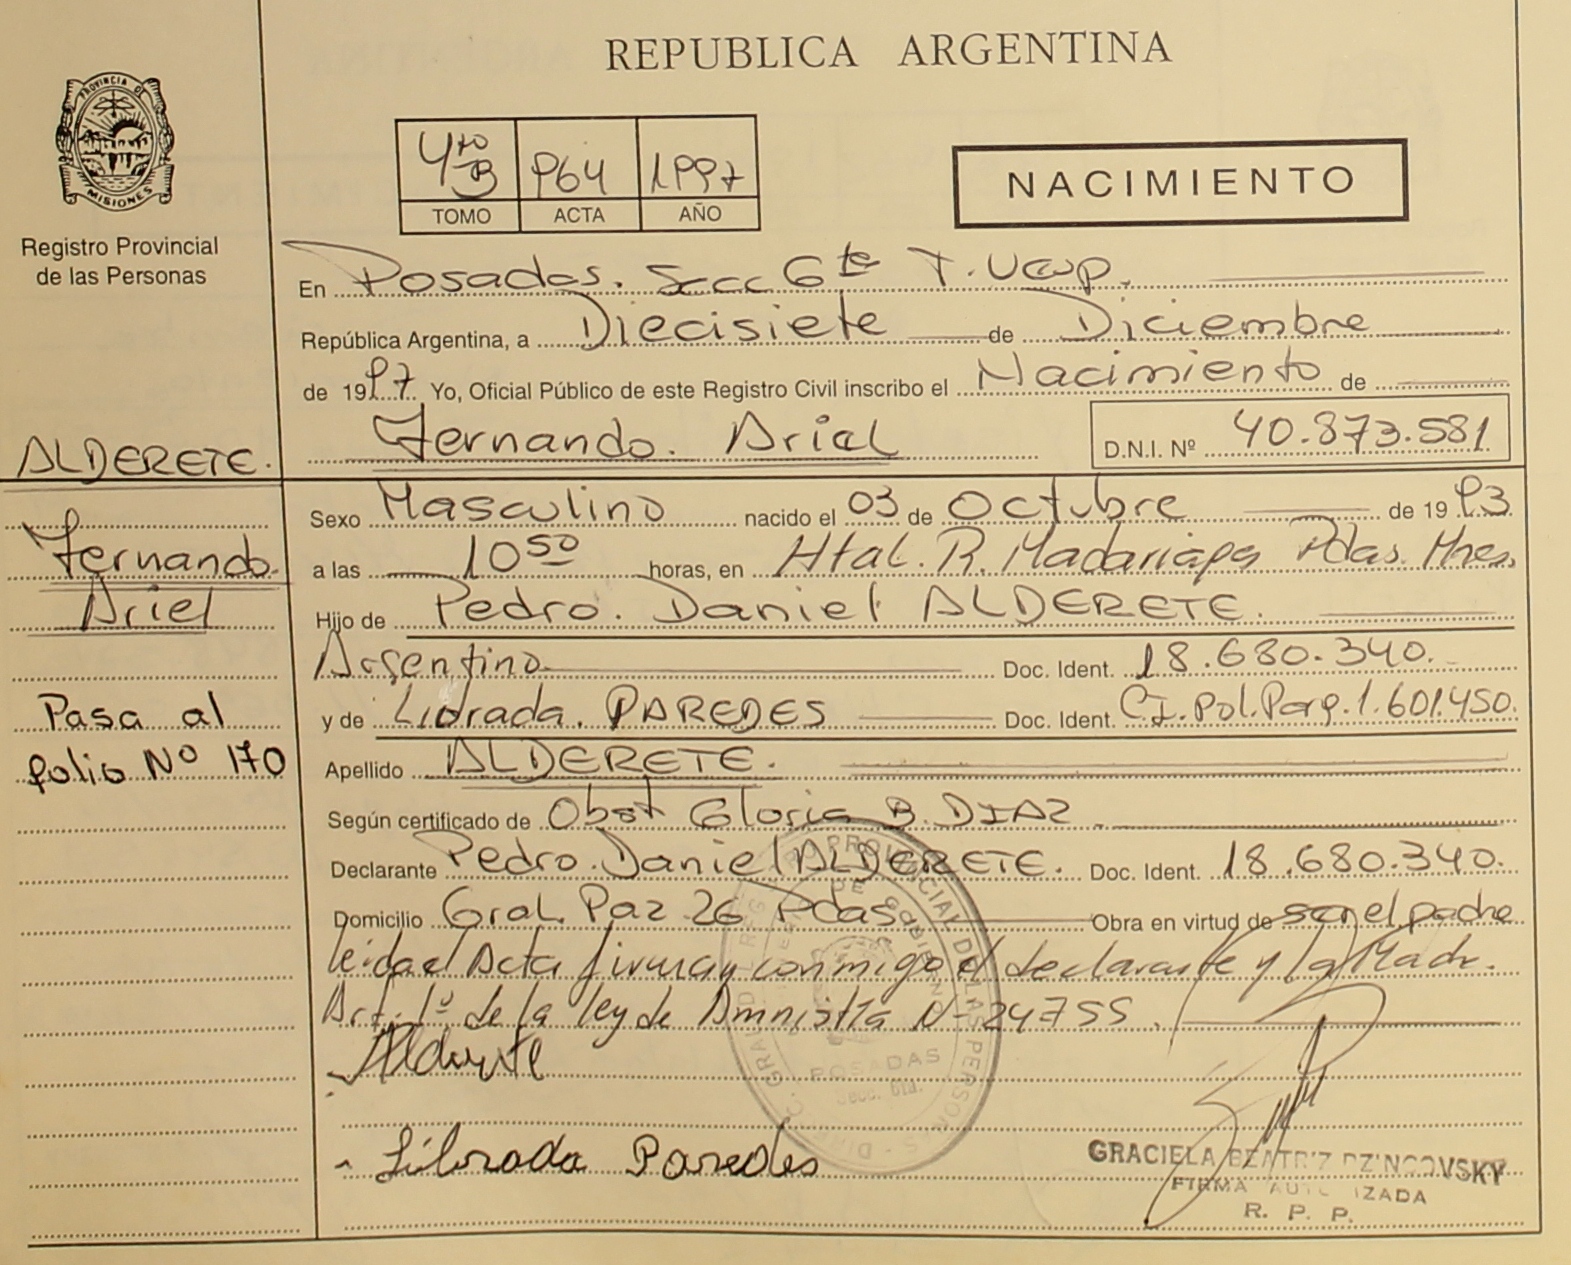 REPUBLICA ARGENTINA
PROVINCIA DE
MISIONES
Registro Provincial
de las Personas
4to B 964 1997
TOMO ACTA AÑO
NACIMIENTO
En Posadas. Secc 6ta
República Argentina, a Diecisiete de Diciembre
de 1997. Yo, Oficial Público de este Registro Civil inscribo el Nacimiento de
Fernando. Ariel D.N.I. Nº 40.873.581
ALDERETE.
Fernando.
Ariel
Pasa al
folio Nº 170
Sexo Masculino nacido el 03 de Octubre de 1993
a las 10 50 horas, en Htal. R. Madariaga Pdas. Mnes.
Hijo de Pedro. Daniel ALDERETE.
Argentino Doc. Ident. 18.680.340.
y de Librada. PAREDES Doc. Ident. CI. Pol. Parg. 1.601.450.
Apellido ALDERETE.
Según certificado de Obst Gloria B. DIAZ
Declarante Pedro. Daniel ALDERETE. Doc. Ident. 18.680.340.
Domicilio Gral. Paz 26 Pdas Obra en virtud de ser el padre
leida el Acta firman conmigo el declarante y la Madre.
Art. 1º de la ley de Amnistía Nº 24755.
Alderete
Librada Paredes
POSADAS
Secc. 6ta.
GRACIELA BEATRIZ
FIRMA AUTORIZADA
R. P. P.